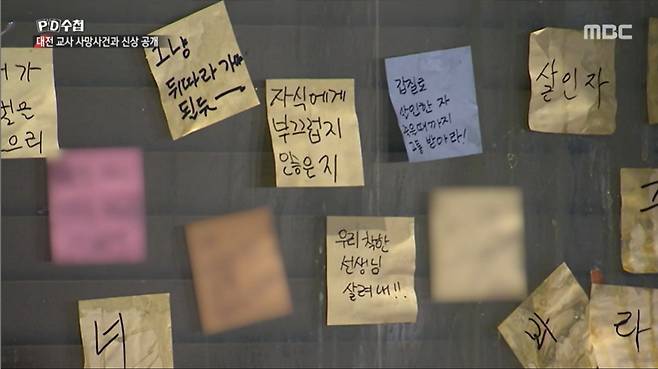 PD수첩
대전 교사 사망사건과 신상 공개
MBC
그냥
뒤따라 가면
된듯~
자식에게
부끄럽지
않은지
갑질로
살인한 자
죽을때까지
고통 받아라!
살인자
우리 착한
선생님
살려내!!
너
라